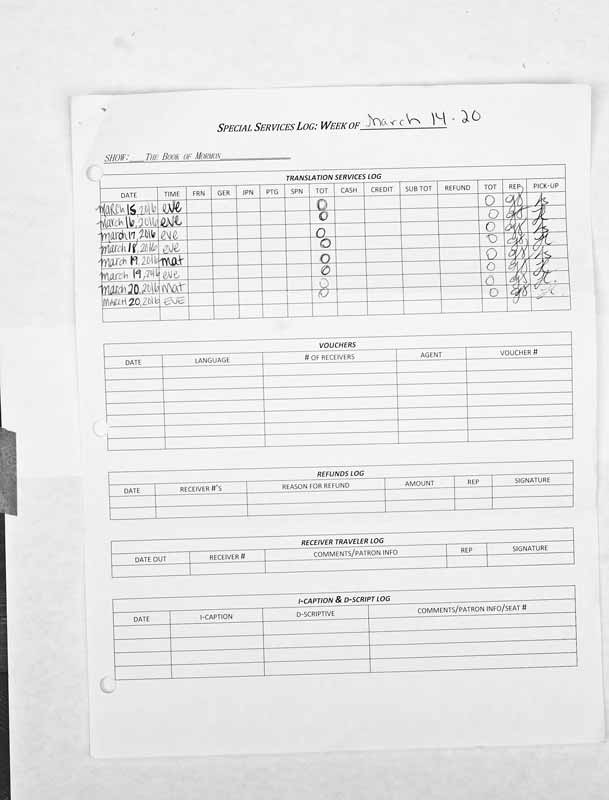 SPECIAL SERVICES LOG: WEEK OF March 14 - 20
SHOW: THE BOOK OF MORMON
TRANSLATION SERVICES LOG
DATE TIME FRN GER JPN PTG SPN TOT CASH CREDIT SUB TOT REFUND TOT REP PICK-UP
MARCH 15, 2016 eve 0 0
MARCH 16, 2016 eve 0 0
march 17, 2016 eve 0 0
march 18, 2016 eve 0 0
march 19, 2016 mat 0 0
march 19, 2016 eve 0 0
march 20, 2016 mat 0 0
MARCH 20, 2016 EVE 0 0
VOUCHERS
DATE LANGUAGE # OF RECEIVERS AGENT VOUCHER #
REFUNDS LOG
DATE RECEIVER #'S REASON FOR REFUND AMOUNT REP SIGNATURE
RECEIVER TRAVELER LOG
DATE OUT RECEIVER # COMMENTS/PATRON INFO REP SIGNATURE
I-CAPTION & D-SCRIPT LOG
DATE I-CAPTION D-SCRIPTIVE COMMENTS/PATRON INFO/SEAT #